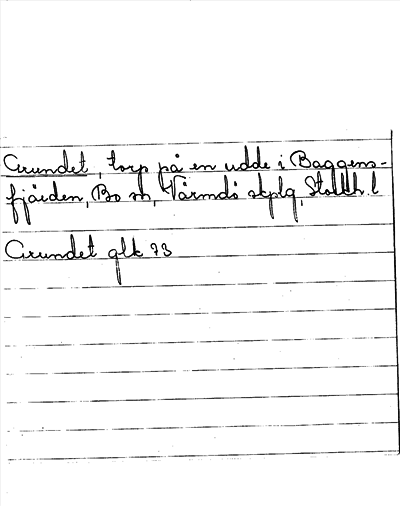 Grundet, torp på en udde i Baggens-
fjärden, Bo sn, Värmdö skplg, Stockh. l
Grundet glk 73